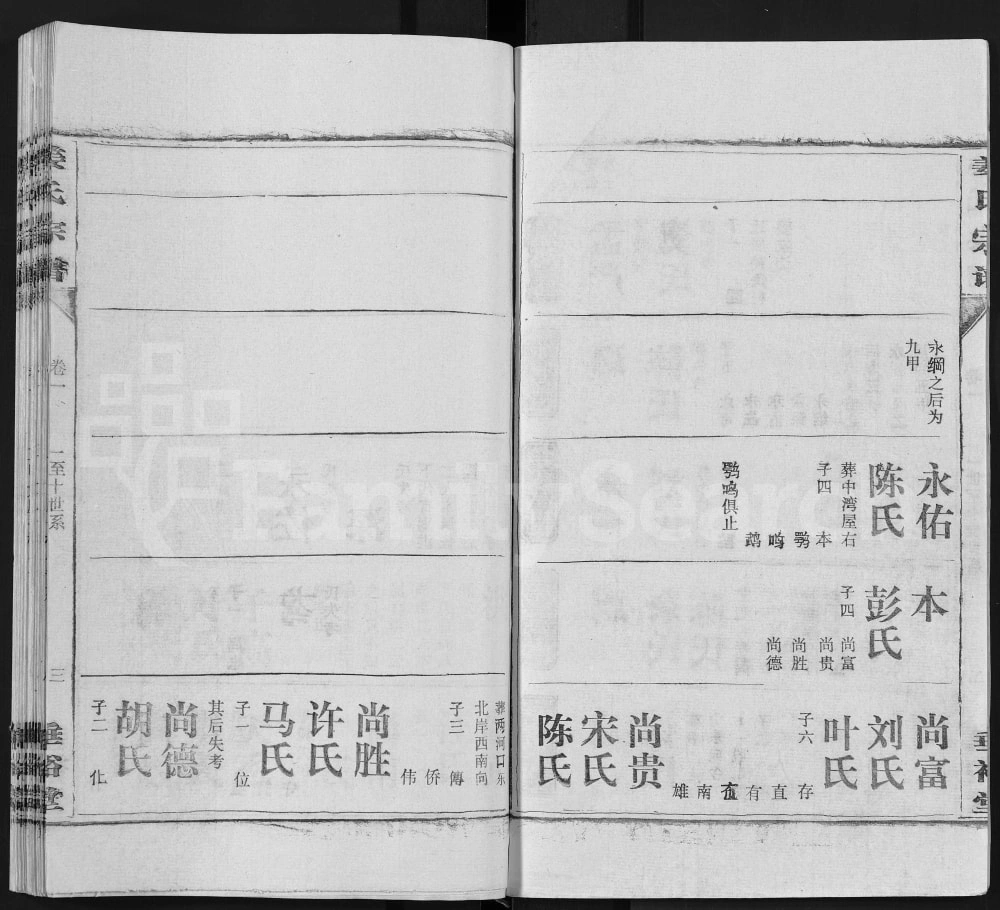 永纲之后为
九甲
永佑
陈氏
葬中湾屋右
子四
本
鹗
鸣
鹉
鹗鸣俱止
本
彭氏
子四
尚富
尚贵
尚胜
尚德
尚富
刘氏
叶氏
子六
存
直
有
南
雄
尚贵
宋氏
陈氏
葬两河口东
北岸西南向
子三
傅
侨
伟
尚胜
许氏
马氏
子一
位
其后失考
尚德
胡氏
子二
化
姜氏宗谱
卷一
一至十世系
三
垂裕堂
FamilySearch